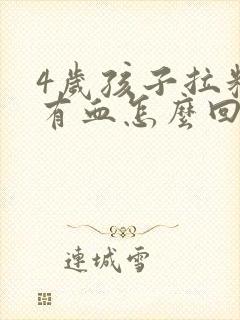 4歲孩子拉粑
有血怎麼回
連城雪